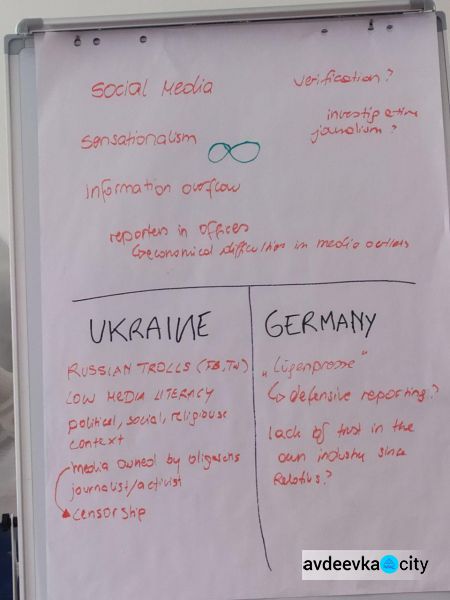 social Media
verification?
investigative
journalism?
sensationalism
information overflow
reporters in offices
↳economical difficulties in media outlets
UKRAINE
RUSSIAN TROLLS (FB, TW)
LOW MEDIA LITERACY
political, social, religiouse
context
media owned by oligarchs
journalist/activist
censorship
GERMANY
„Lügenpresse"
↳defensive reporting?
lack of trust in the
own industry since
Relotius?
avdeevka city